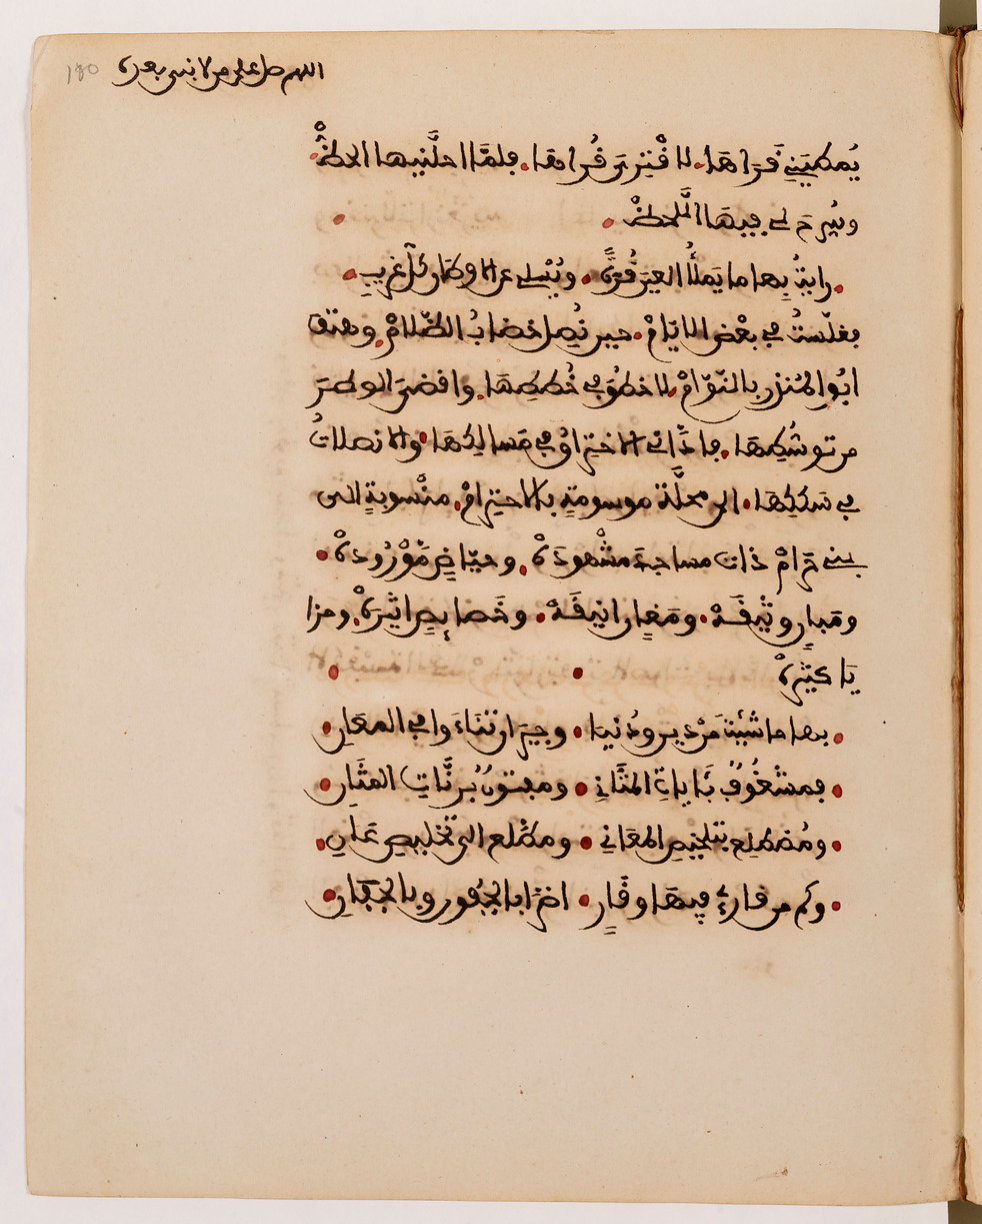 اللهم صل على من لا نبي بعده
180
يُمطينِي قَرَاهَا. لاقْتري قُراها. فلمّا احلّنيها الحظّْ
وسَرَحَ لي فيهَا اللَّحظْ
رايتُ بها ما يَملأُ العينَ قُرّةً. ويُسلي عن الاوطان كلَّ غريبِ
فغلّستُ في بعْض الايّامْ. حين نُصِلَ خضابُ الظّلامْ. وهتف
ابُو المُنذر بالنّوّامْ. لاخطُوَ في خُططِهَا. واقضيَ الوطر
من توسُّطِهَا. فادَّاني الاختراقُ في مَسالِكهَا. والانصلاتُ
في سككِهَا. الى محلَّة موسومةٍ بالاحترامْ. منْسوبةٍ الى
بني حَرامْ ذات مساجدَ مشْهودَهْ. وحيَاضٍ مَوْرُودهْ
ومَبانٍ وثيقَهْ. ومَغانٍ انيقَهْ. وخَصايصٍ اثيرَهْ. ومزا
يَا كثيرهْ
بها ما شيْتَ مَنْ دين ودُنيا. وجيرَان تنَاءَوا في المعانِ
فمشْغُوفٌ بَايَاتِ المثَانِي. ومفتونٌ برنَّاتِ المثَانِ
ومُضطلِع بتلخيص المعَانِي. ومطّلع الى تخليصِ عَانِ
وكم من قارئ فيهَا وقَارٍ. اضرّا بالجُفون وبالجِفانِ